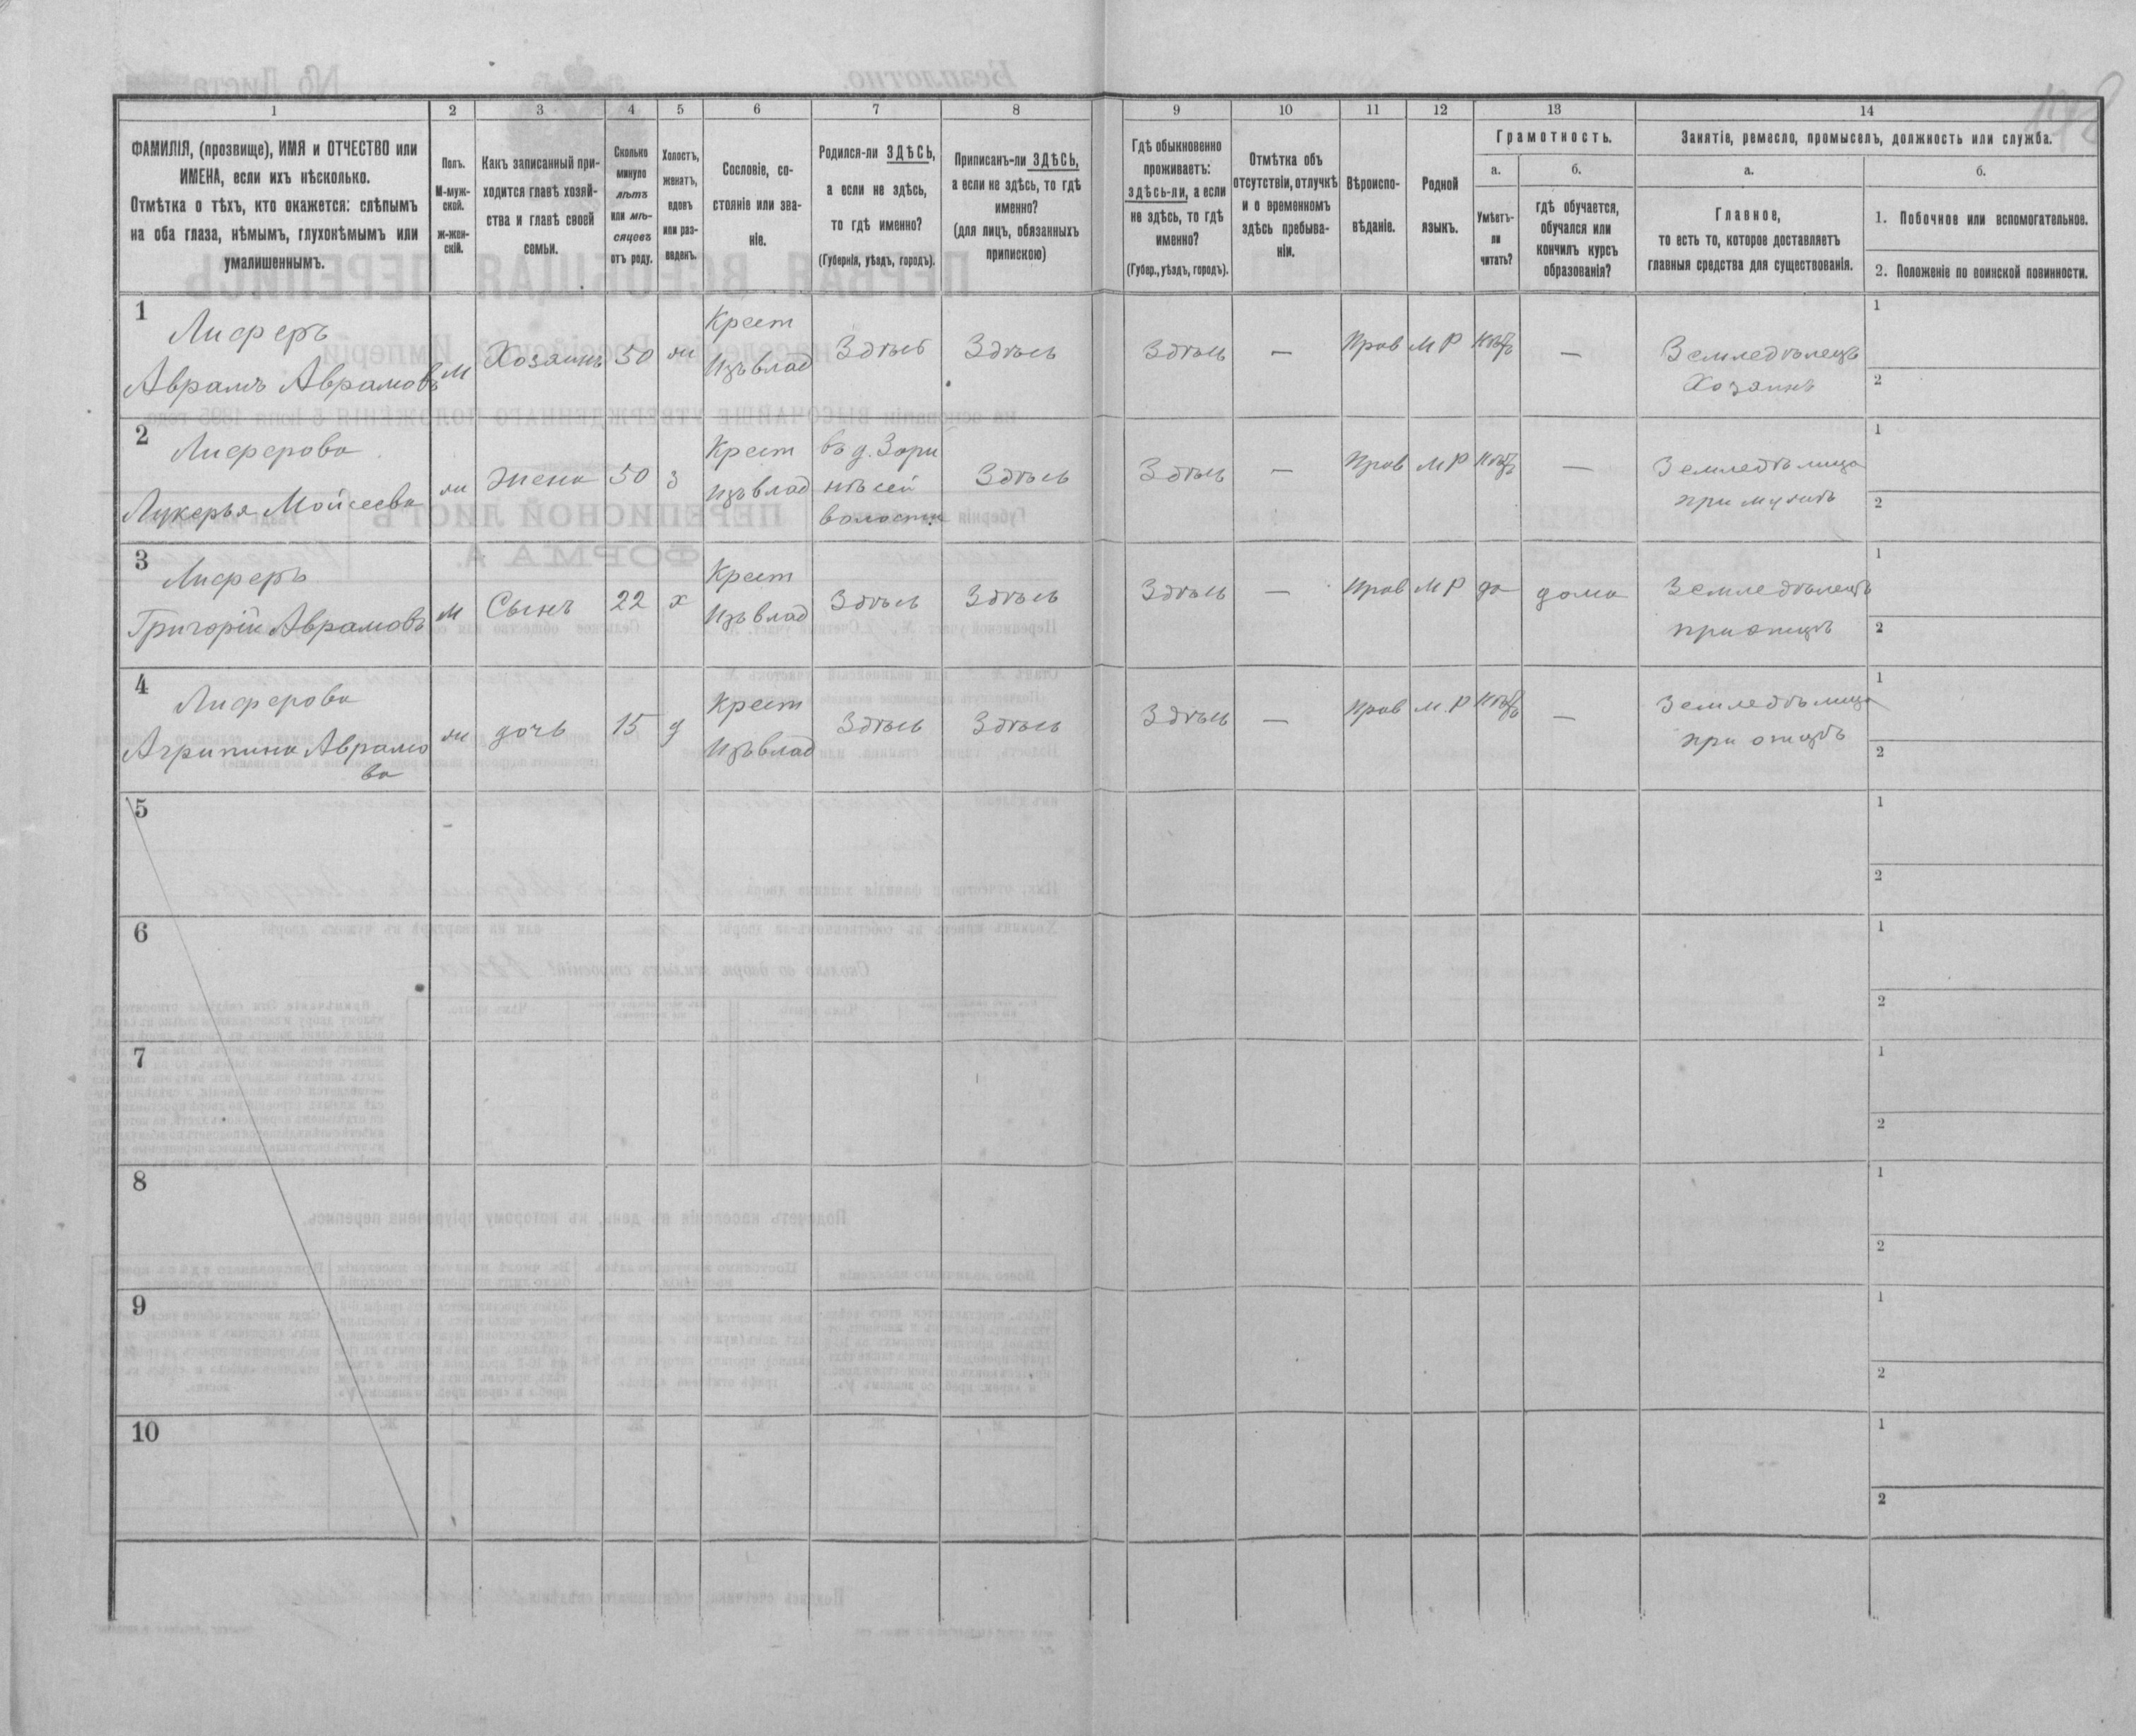 1 2 3 4 5 6 7 8 9 10 11 12 13 14
ФАМИЛІЯ, (прозвище), ИМЯ и ОТЧЕСТВО или
ИМЕНА, если ихъ нѣсколько.
Отмѣтка о тѣхъ, кто окажется: слѣпымъ
на оба глаза, нѣмымъ, глухонѣмымъ или
умалишеннымъ.
Полъ.
М-муж-
ской.
ж-жен-
скій.
Какъ записанный при-
ходится главѣ хозяй-
ства и главѣ своей
семьи.
Сколько
минуло
лѣтъ
или мѣ-
сяцовъ
отъ роду.
Холостъ,
женатъ,
вдовъ
или раз-
веденъ.
Сословіе, со-
стояніе или зва-
ніе.
Родился-ли ЗДѢСЬ,
а если не здѣсь,
то гдѣ именно?
(Губернія, уѣздъ, городъ).
Приписанъ-ли ЗДѢСЬ,
а если не здѣсь, то гдѣ
именно?
(для лицъ, обязанныхъ
припискою)
Гдѣ обыкновенно
проживаетъ:
здѣсь-ли, а если
не здѣсь, то гдѣ
именно?
(Губер., уѣздъ, городъ).
Отмѣтка объ
отсутствіи, отлучкѣ
и о временномъ
здѣсь пребыва-
ніи.
Вѣроиспо-
вѣданіе.
Родной
языкъ.
Грамотность.
а.
Умѣетъ-
ли
читать?
б.
гдѣ обучается,
обучался или
кончилъ курсъ
образованія?
Занятіе, ремесло, промыселъ, должность или служба.
а.
Главное,
то есть то, которое доставляетъ
главныя средства для существованія.
б.
1. Побочное или вспомогательное.
2. Положеніе по воинской повинности.
1
Лиферъ
Аврамъ Аврамовъ
М
Хозаинъ
50
ж
Крест
Изъ влад
Здѣсь
Здѣсь
Здѣсь
—
Прав
М Р
Нѣтъ
—
Земледѣлецъ
Хозаинъ
1
2
2
Лиферова
Лукерья Мойсеева
ж
Жена
50
з
Крест
Изъ влад
въ д. Зори
нѣ сей
волости
Здѣсь
Здѣсь
—
Прав
М Р
Нѣтъ
—
Земледѣлица
при мужѣ
1
2
3
Лиферъ
Григорій Аврамовъ
М
Сынъ
22
х
Крест
Изъ влад
Здѣсь
Здѣсь
Здѣсь
—
Прав
М Р
да
дома
Земледѣлецъ
при отцѣ
1
2
4
Лиферова
Агрипина Аврамо
ва
ж
дочь
15
д
Крест
Изъ влад
Здѣсь
Здѣсь
Здѣсь
—
Прав
М. Р
Нѣтъ
—
Земледѣлица
при отцѣ
1
2
5
1
2
6
1
2
7
1
2
8
1
2
9
1
2
10
1
2